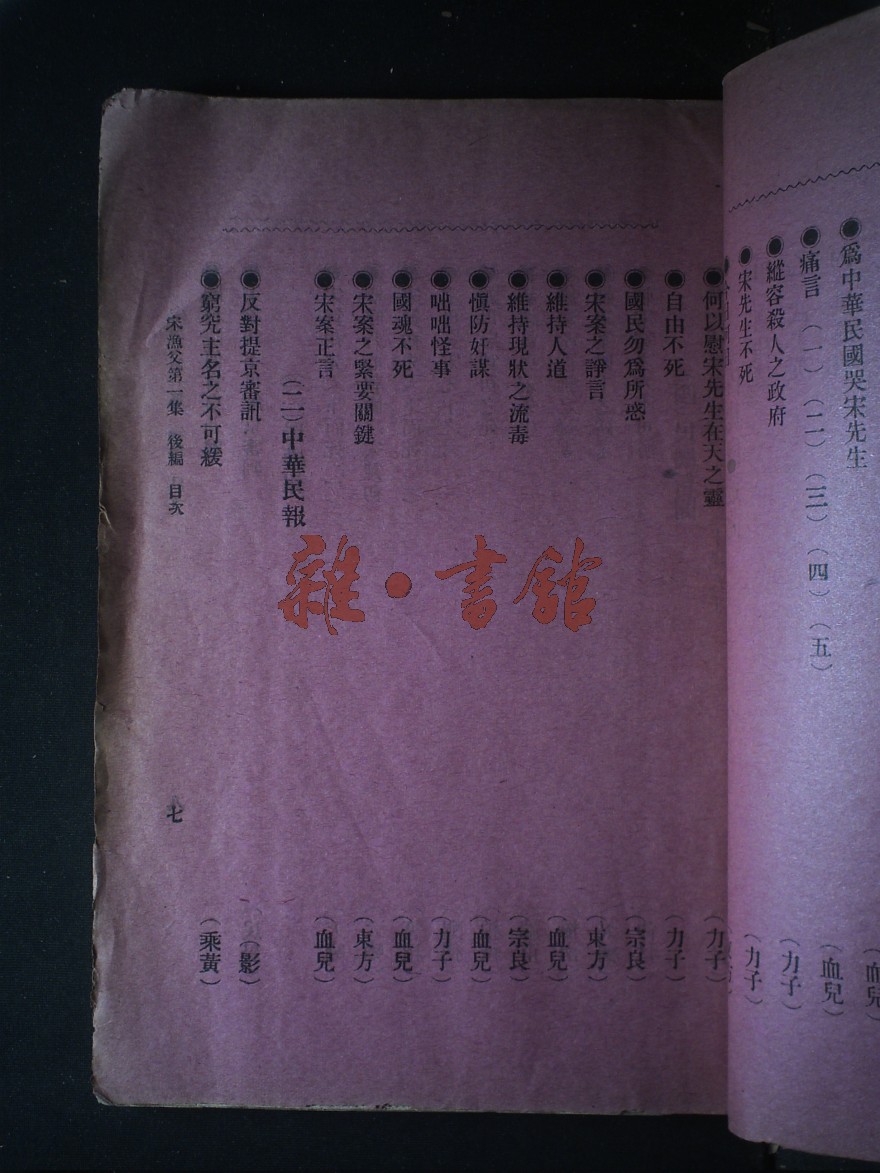 ●爲中華民國哭宋先生
（血兒）
●痛言（一）（二）（三）（四）（五）
（血兒）
●縱容殺人之政府
（力子）
●宋先生不死
（力子）
●何以慰宋先生在天之靈
（力子）
●自由不死
（力子）
●國民勿爲所惑
（宗良）
●宋案之諍言
（東方）
●維持人道
（血兒）
●維持現狀之流毒
（宗良）
●愼防奸謀
（血兒）
●咄咄怪事
（力子）
●國魂不死
（血兒）
●宋案之緊要關鍵
（東方）
●宋案正言
（血兒）
（二）中華民報
●反對提京審訊
（影）
●窮究主名之不可緩
（乘黃）
宋漁父第一集　後編　目次
七
雜·書館